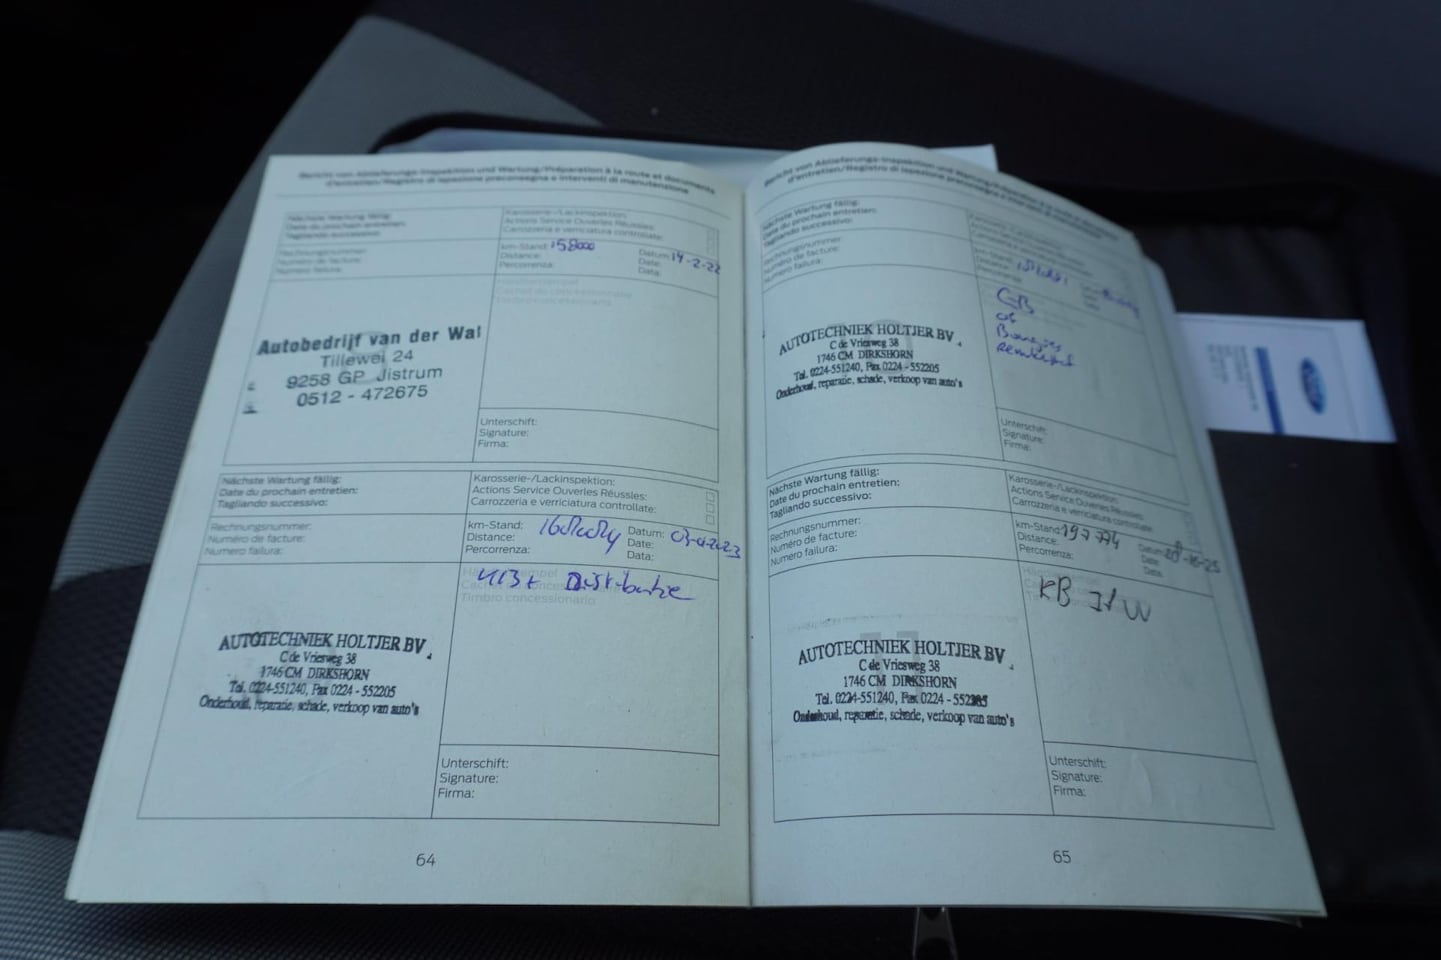 Bericht von Ablieferungs-Inspektion und Wartung/Préparation à la route et documents
d'entretien/Registro di ispezione preconsegna e interventi di manutenzione
Nächste Wartung fällig:
Date du prochain entretien:
Tagliando successivo:
Karosserie-/Lackinspektion:
Actions Service Ouvertes Réussies:
Carrozzeria e verniciatura controllate:
Rechnungsnummer:
Numéro de facture:
Numero failura:
km-Stand: 158000
Distance:
Percorrenza:
Datum: 14-2-22
Date:
Data:
Händlerstempel
Cachet du concessionnaire
Timbro concessionario
Autobedrijf van der Wal
Tillewei 24
9258 GP Jistrum
0512 - 472675
Unterschift:
Signature:
Firma:
Nächste Wartung fällig:
Date du prochain entretien:
Tagliando successivo:
Karosserie-/Lackinspektion:
Actions Service Ouverles Réussles:
Carrozzeria e verriciatura controllate:
Rechnungsnummer:
Numéro de facture:
Numero failura:
km-Stand:
Distance:
Percorrenza:
Datum: 03-4-2023
Date:
Data:
Timbro concessionario
Distributie
AUTOTECHNIEK HOLTJER BV.
C de Vriesweg 38
1746 CM DIRKSHORN
Tel. 0224-551240, Fax 0224 - 552205
Onderhoud, reparatie, schade, verkoop van auto's
Unterschift:
Signature:
Firma:
64
Bericht von Ablieferungs-Inspektion und Wartung/Préparation à la route et documents
d'entretien/Registro di ispezione preconsegna e interventi di manutenzione
Nächste Wartung fällig:
Date du prochain entretien:
Tagliando successivo:
Rechnungsnummer:
Numéro de facture:
Numero failura:
GB
AUTOTECHNIEK HOLTJER BV.
C de Vriesweg 38
1746 CM DIRKSHORN
Tel. 0224-551240, Fax 0224 - 552205
Onderhoud, reparatie, schade, verkoop van auto's
Unterschift:
Signature:
Firma:
Nächste Wartung fällig:
Date du prochain entretien:
Tagliando successivo:
Karosserie-/Lackinspektion:
Actions Service Ouverles Réussles:
Carrozzeria e verriciatura controllate:
Rechnungsnummer:
Numéro de facture:
Numero failura:
km-Stand: 197774
Distance:
Percorrenza:
Datum:
Date:
Data:
KB
AUTOTECHNIEK HOLTJER BV.
C de Vriesweg 38
1746 CM DIRKSHORN
Tel. 0224-551240, Fax 0224 - 552205
Onderhoud, reparatie, schade, verkoop van auto's
Unterschift:
Signature:
Firma:
65
Ford